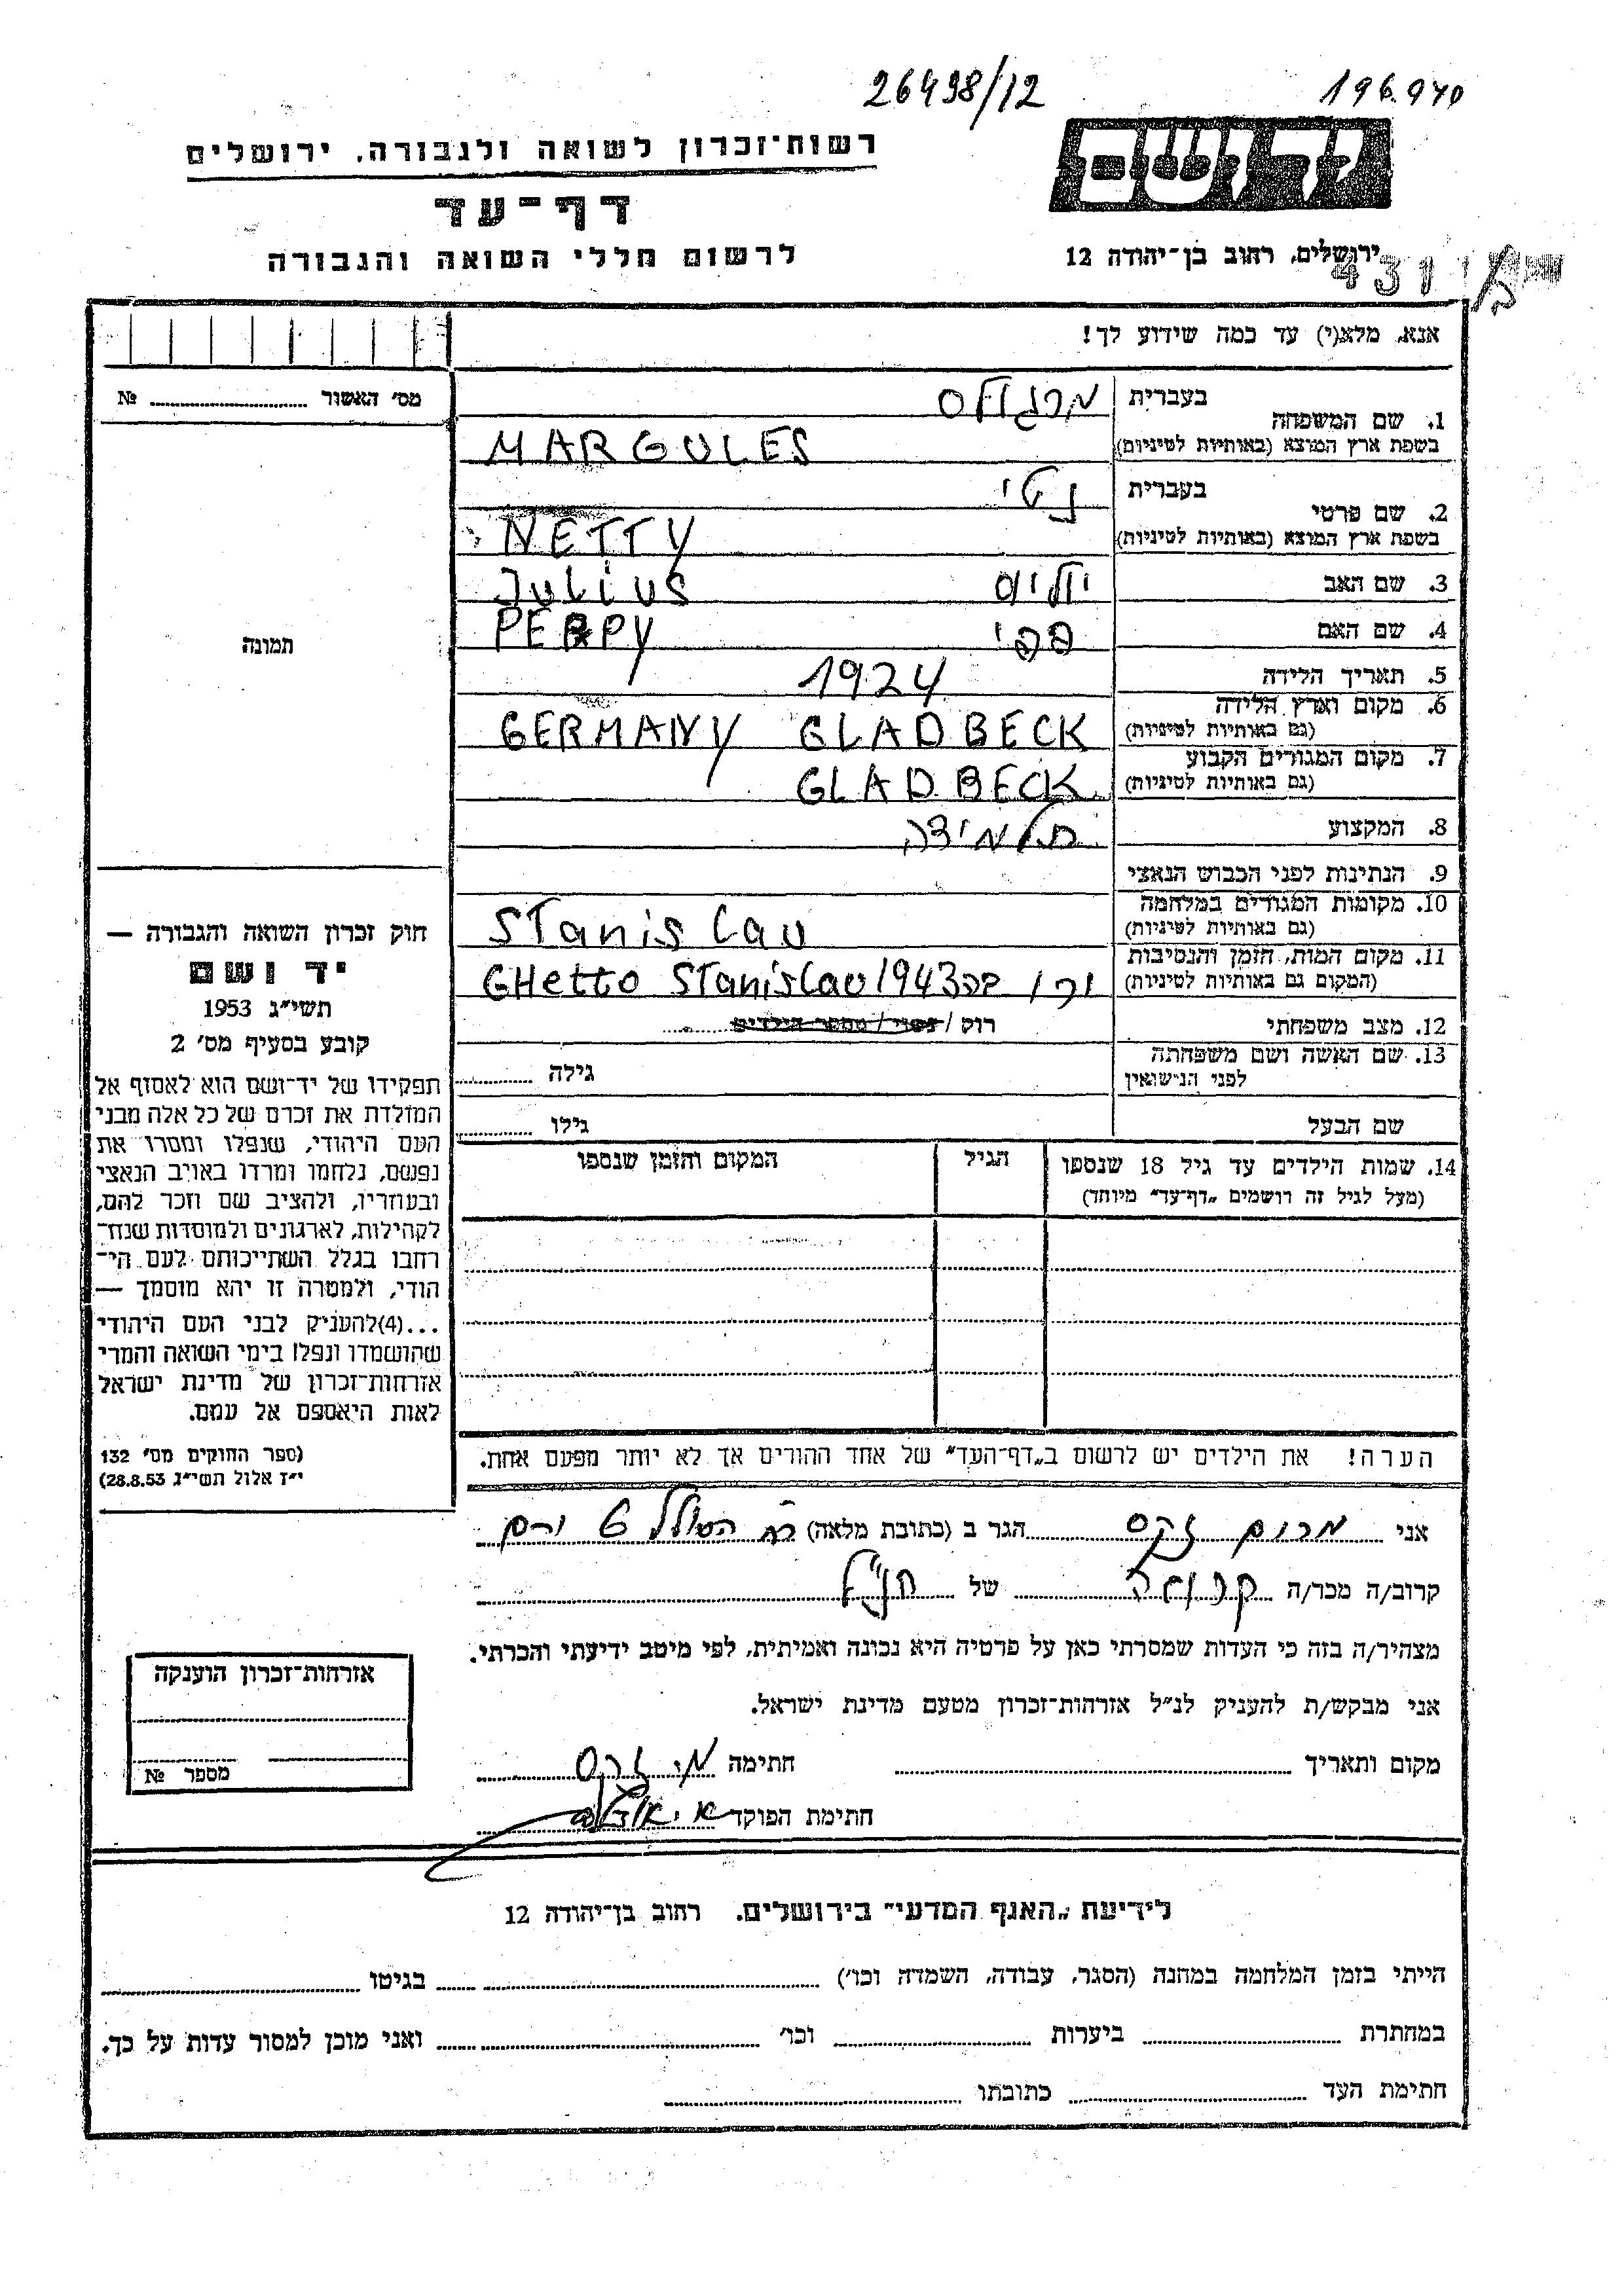 26498/12
196.970
רשות־זכרון לשואה ולגבורה, ירושלים
דף־עד
לרשום חללי השואה והגבורה
יד ושם
ירושלים, רחוב בן־יהודה 12
431
אנא, מלא(י) עד כמה שידוע לך!
מס׳ האשור № 
1. שם המשפחה
בעברית מרגולס
בשפת ארץ המוצא (באותיות לטיניות) MARGULES
2. שם פרטי
בעברית נטי
בשפת ארץ המוצא (באותיות לטיניות) NETTY
3. שם האב יוליוס Julius
4. שם האם פפי PEPPY
5. תאריך הלידה 1924
6. מקום וארץ הלידה
(גם באותיות לטיניות) GERMANY GLADBECK
7. מקום המגורים הקבוע
(גם באותיות לטיניות) GLADBECK
8. המקצוע תלמידה
9. הנתינות לפני הכבוש הנאצי
10. מקומות המגורים במלחמה
(גם באותיות לטיניות) Stanislau
11. מקום המות, הזמן והנסיבות
(המקום גם באותיות לטיניות) GHetto Stanislau 1943
12. מצב משפחתי רוק / נשוי / מספר הילדים
13. שם האשה ושם משפחתה
לפני הנישואין גילה
שם הבעל גילו
14. שמות הילדים עד גיל 18 שנספו
(מעל לגיל זה רושמים „דף־עד״ מיוחד)
הגיל
המקום והזמן שנספו
הערה! את הילדים יש לרשום ב„דף־העד״ של אחד ההורים אך לא יותר מפעם אחת.
תמונה
חוק זכרון השואה והגבורה —
יד ושם
תשי״ג 1953
קובע בסעיף מס׳ 2
תפקידו של יד־ושם הוא לאסוף אל
המולדת את זכרם של כל אלה מבני
העם היהודי, שנפלו ומסרו את
נפשם, נלחמו ומרדו באויב הנאצי
ובעוזריו, ולהציב שם וזכר להם,
לקהילות, לארגונים ולמוסדות שנח־
רחבו בגלל השתייכותם לעם הי־
הודי, ולמטרה זו יהא מוסמך —
...(4)להעניק לבני העם היהודי
שהושמדו ונפלו בימי השואה והמרי
אזרחות־זכרון של מדינת ישראל
לאות היאספם אל עמם.
(ספר החוקים מס׳ 132
י״ז אלול תשי״ג 28.8.53)
אני מרום הגר ב (כתובת מלאה)
קרוב/ה מכר/ה קרובה של הנ״ל
מצהיר/ה בזה כי העדות שמסרתי כאן על פרטיה היא נכונה ואמיתית, לפי מיטב ידיעתי והכרתי.
אני מבקש/ת להעניק לנ״ל אזרחות־זכרון מטעם מדינת ישראל.
מקום ותאריך חתימה
חתימת הפוקד
אזרחות־זכרון הוענקה
מספר №
לידיעת „האגף המדעי״ בירושלים, רחוב בן־יהודה 12
הייתי בזמן המלחמה במחנה (הסגר, עבודה, השמדה וכו׳) בגיטו
במחתרת ביערות וכו׳ ואני מוכן למסור עדות על כך.
חתימת העד כתובתו